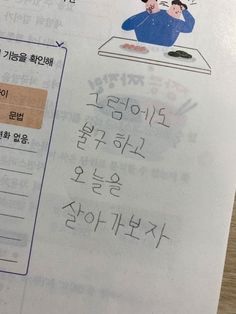 기능을 확인해
문법
변화 없음.
그럼에도
불구 하고
오늘을
살아가보자